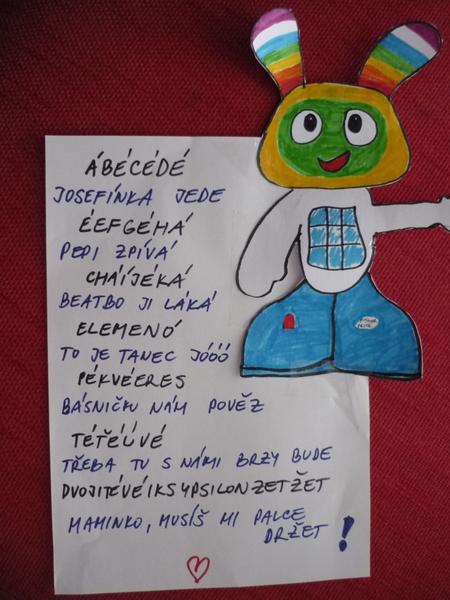 ÁBÉCÉDÉ
JOSEFÍNKA JEDE
ÉEFGÉHÁ
PEPI ZPÍVÁ
CHÁÍJÉKÁ
BEATBO JI LÁKÁ
ELEMENÓ
TO JE TANEC JÓÓÓ
PÉKVÉERES
BÁSNIČKU NÁM POVĚZ
TÉTĚÚVÉ
TŘEBA TU S NÁMI BRZY BUDE
DVOJITÉVÉIKSYPSILONZETŽET
MAMINKO, MUSÍŠ MI PALCE
DRŽET !